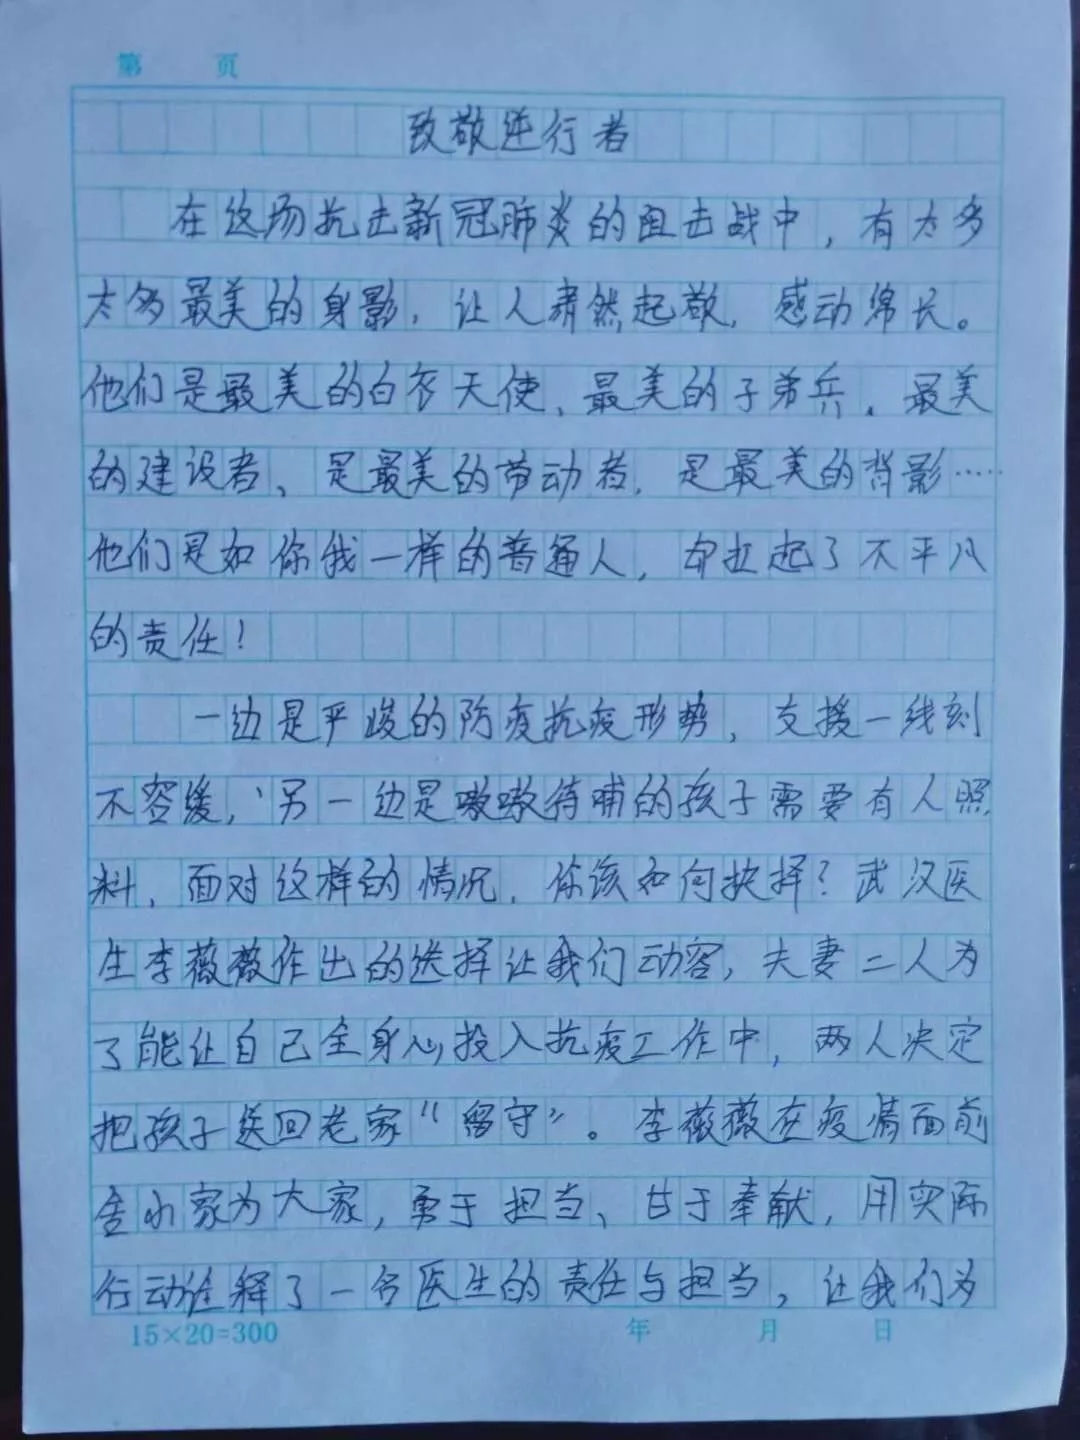 第 页
致敬逆行者
在这场抗击新冠肺炎的阻击战中，有太多
太多最美的身影，让人肃然起敬，感动绵长。
他们是最美的白衣天使、最美的子弟兵、最美
的建设者、是最美的劳动者，是最美的背影……
他们是如你我一样的普通人，却扛起了不平凡
的责任！
一边是严峻的防疫抗疫形势，支援一线刻
不容缓，另一边是嗷嗷待哺的孩子需要有人照
料，面对这样的情况，你该如何抉择？武汉医
生李薇薇作出的选择让我们动容，夫妻二人为
了能让自己全身心投入抗疫工作中，两人决定
把孩子送回老家“留守”。李薇薇在疫情面前
舍小家为大家，勇于担当、甘于奉献，用实际
行动诠释了一名医生的责任与担当，让我们为
15×20=300 年 月 日